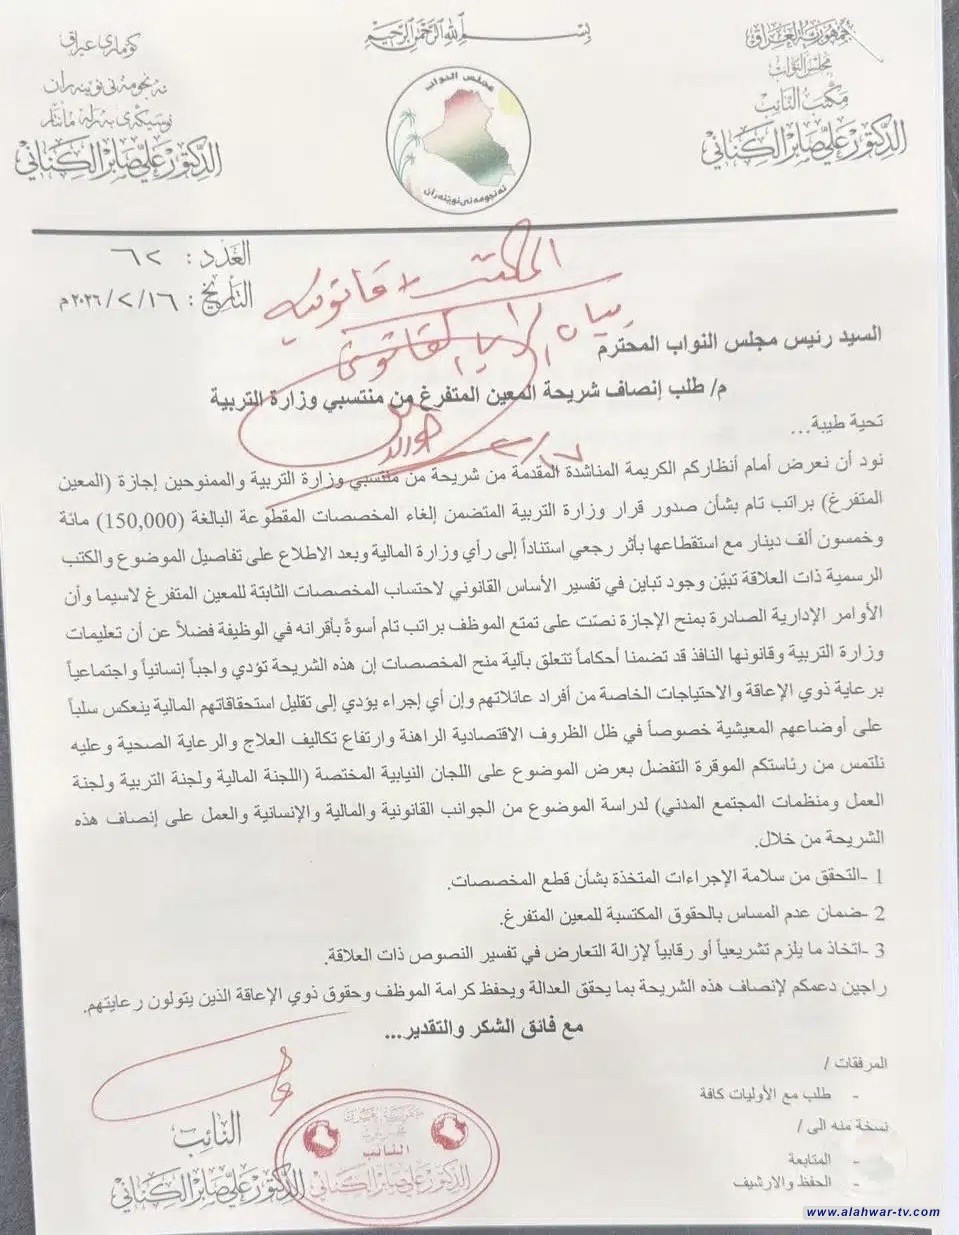 بسم الله الرحمن الرحيم
جمهورية العراق
مجلس النواب
مكتب النائب
الدكتور علي صابر الكناني
كۆماری عیراق
ئەنجومەنی نوێنەران
الدكتور علي صابر الكناني
مجلس النواب
ئەنجومەنی نوێنەران
العدد : ٦٢
التاريخ : ٢٠٢٦/٢/١٦م
السيد رئيس مجلس النواب المحترم
م/ طلب إنصاف شريحة المعين المتفرغ من منتسبي وزارة التربية
تحية طيبة...
نود أن نعرض أمام أنظاركم الكريمة المناشدة المقدمة من شريحة من منتسبي وزارة التربية والممنوحين إجازة (المعين
المتفرغ) براتب تام بشأن صدور قرار وزارة التربية المتضمن إلغاء المخصصات المقطوعة البالغة (150,000) مائة
وخمسون ألف دينار مع استقطاعها بأثر رجعي استناداً إلى رأي وزارة المالية وبعد الاطلاع على تفاصيل الموضوع والكتب
الرسمية ذات العلاقة تبيّن وجود تباين في تفسير الأساس القانوني لاحتساب المخصصات الثابتة للمعين المتفرغ لاسيما وأن
الأوامر الإدارية الصادرة بمنح الإجازة نصّت على تمتع الموظف براتب تام أسوةً بأقرانه في الوظيفة فضلاً عن أن تعليمات
وزارة التربية وقانونها النافذ قد تضمنا أحكاماً تتعلق بآلية منح المخصصات إن هذه الشريحة تؤدي واجباً إنسانياً واجتماعياً
برعاية ذوي الإعاقة والاحتياجات الخاصة من أفراد عائلاتهم وإن أي إجراء يؤدي إلى تقليل استحقاقاتهم المالية ينعكس سلباً
على أوضاعهم المعيشية خصوصاً في ظل الظروف الاقتصادية الراهنة وارتفاع تكاليف العلاج والرعاية الصحية وعليه
نلتمس من رئاستكم الموقرة التفضل بعرض الموضوع على اللجان النيابية المختصة (اللجنة المالية ولجنة التربية ولجنة
العمل ومنظمات المجتمع المدني) لدراسة الموضوع من الجوانب القانونية والمالية والإنسانية والعمل على إنصاف هذه
الشريحة من خلال.
1 -التحقق من سلامة الإجراءات المتخذة بشأن قطع المخصصات.
2 -ضمان عدم المساس بالحقوق المكتسبة للمعين المتفرغ.
3 -اتخاذ ما يلزم تشريعياً أو رقابياً لإزالة التعارض في تفسير النصوص ذات العلاقة.
راجين دعمكم لإنصاف هذه الشريحة بما يحقق العدالة ويحفظ كرامة الموظف وحقوق ذوي الإعاقة الذين يتولون رعايتهم.
مع فائق الشكر والتقدير...
المرفقات /
- طلب مع الأوليات كافة
نسخة منه الى /
- المتابعة
- الحفظ والارشيف
النائب
الدكتور علي صابر الكناني
النائب
الدكتور علي صابر الكناني
www.alahwar-tv.com